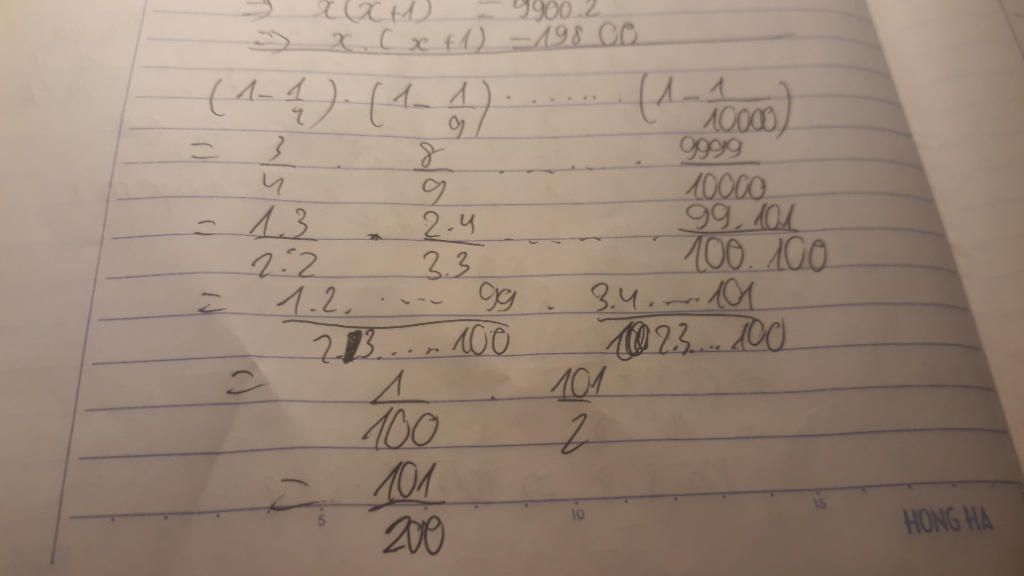 ⇒ x(x+1) = 9900.2
⇒ x.(x+1) = 19800
(1 - 1/4) . (1 - 1/9) . ...... (1 - 1/10000)
= 3/4 . 8/9 . ... . 9999/10000
= 1.3/2.2 . 2.4/3.3 ..... . 99.101/100.100
= 1.2. .... 99/2.3.....100 . 3.4.....101/2.3....100
= 1/100 . 101/2
= 101/200
5 10 15 HONG HA